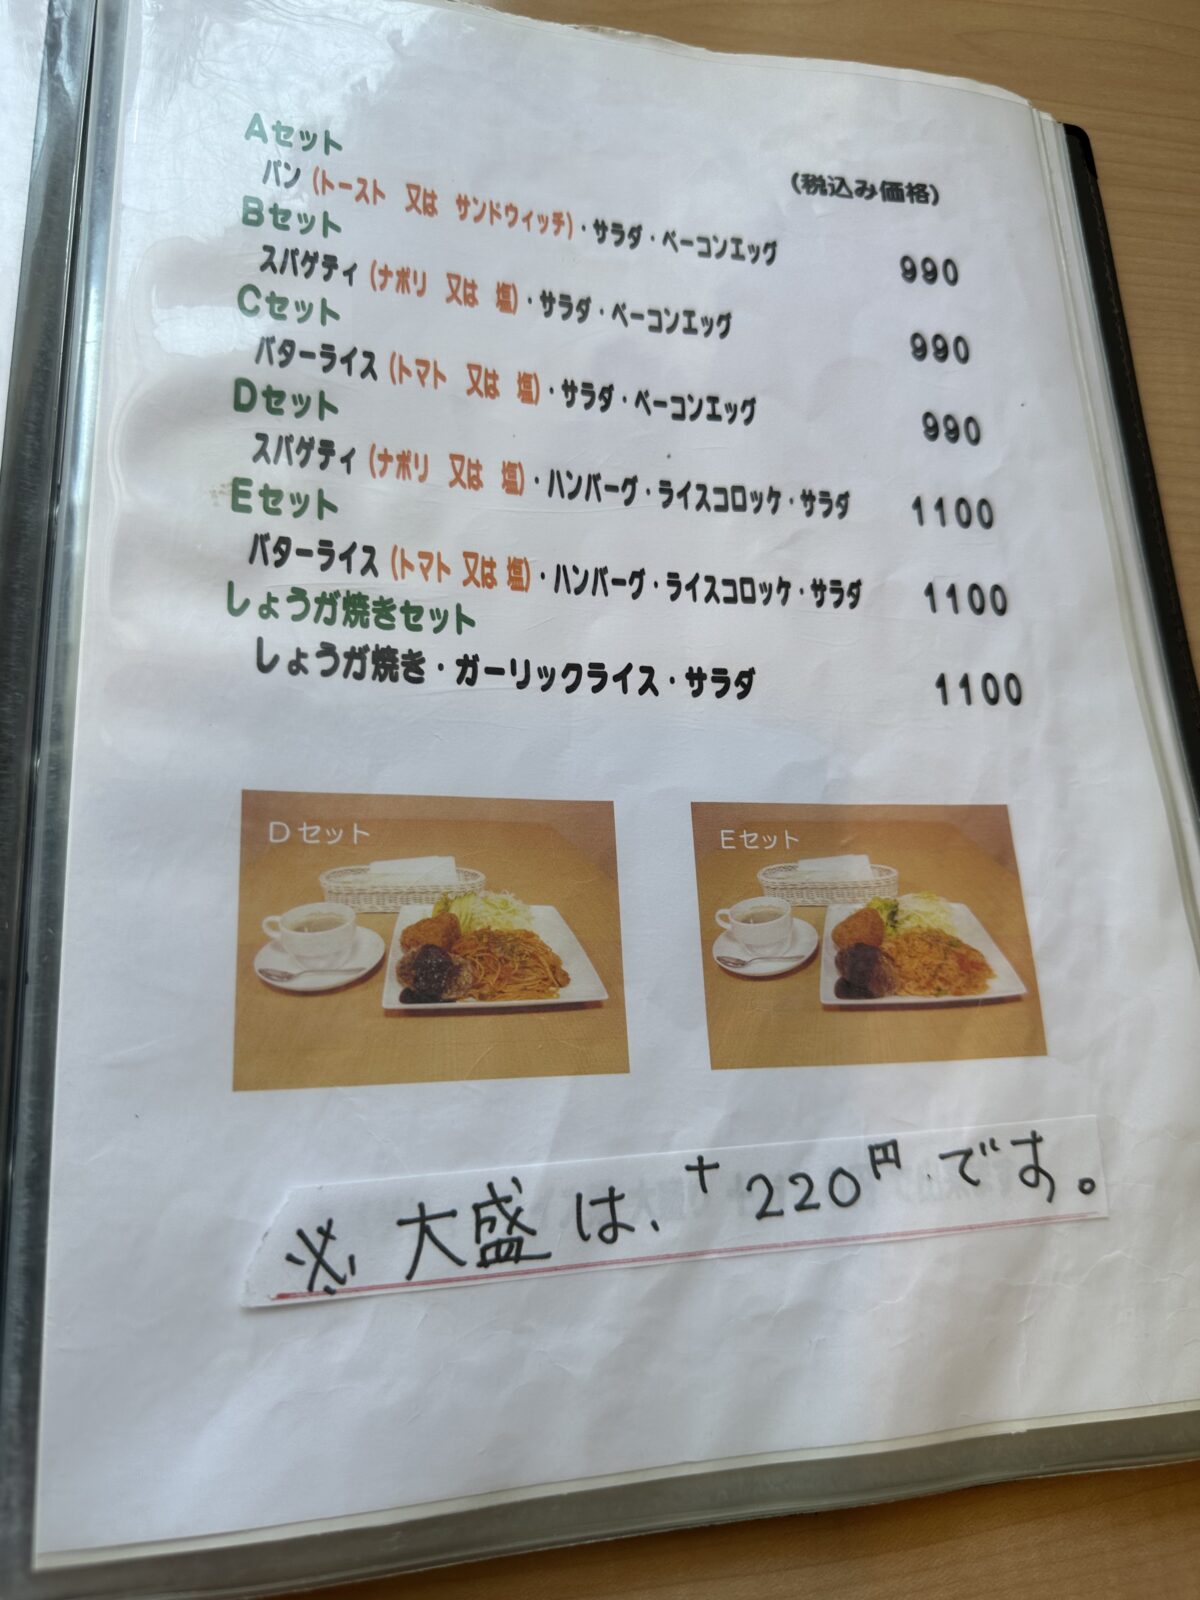 Aセット
(税込み価格)
パン (トースト 又は サンドウィッチ)・サラダ・ベーコンエッグ 990
Bセット
スパゲティ (ナポリ 又は 塩)・サラダ・ベーコンエッグ 990
Cセット
バターライス (トマト 又は 塩)・サラダ・ベーコンエッグ 990
Dセット
スパゲティ (ナポリ 又は 塩)・ハンバーグ・ライスコロッケ・サラダ 1100
Eセット
バターライス (トマト 又は 塩)・ハンバーグ・ライスコロッケ・サラダ 1100
しょうが焼きセット
しょうが焼き・ガーリックライス・サラダ 1100
Dセット
Eセット
※ 大盛は、+220円です。